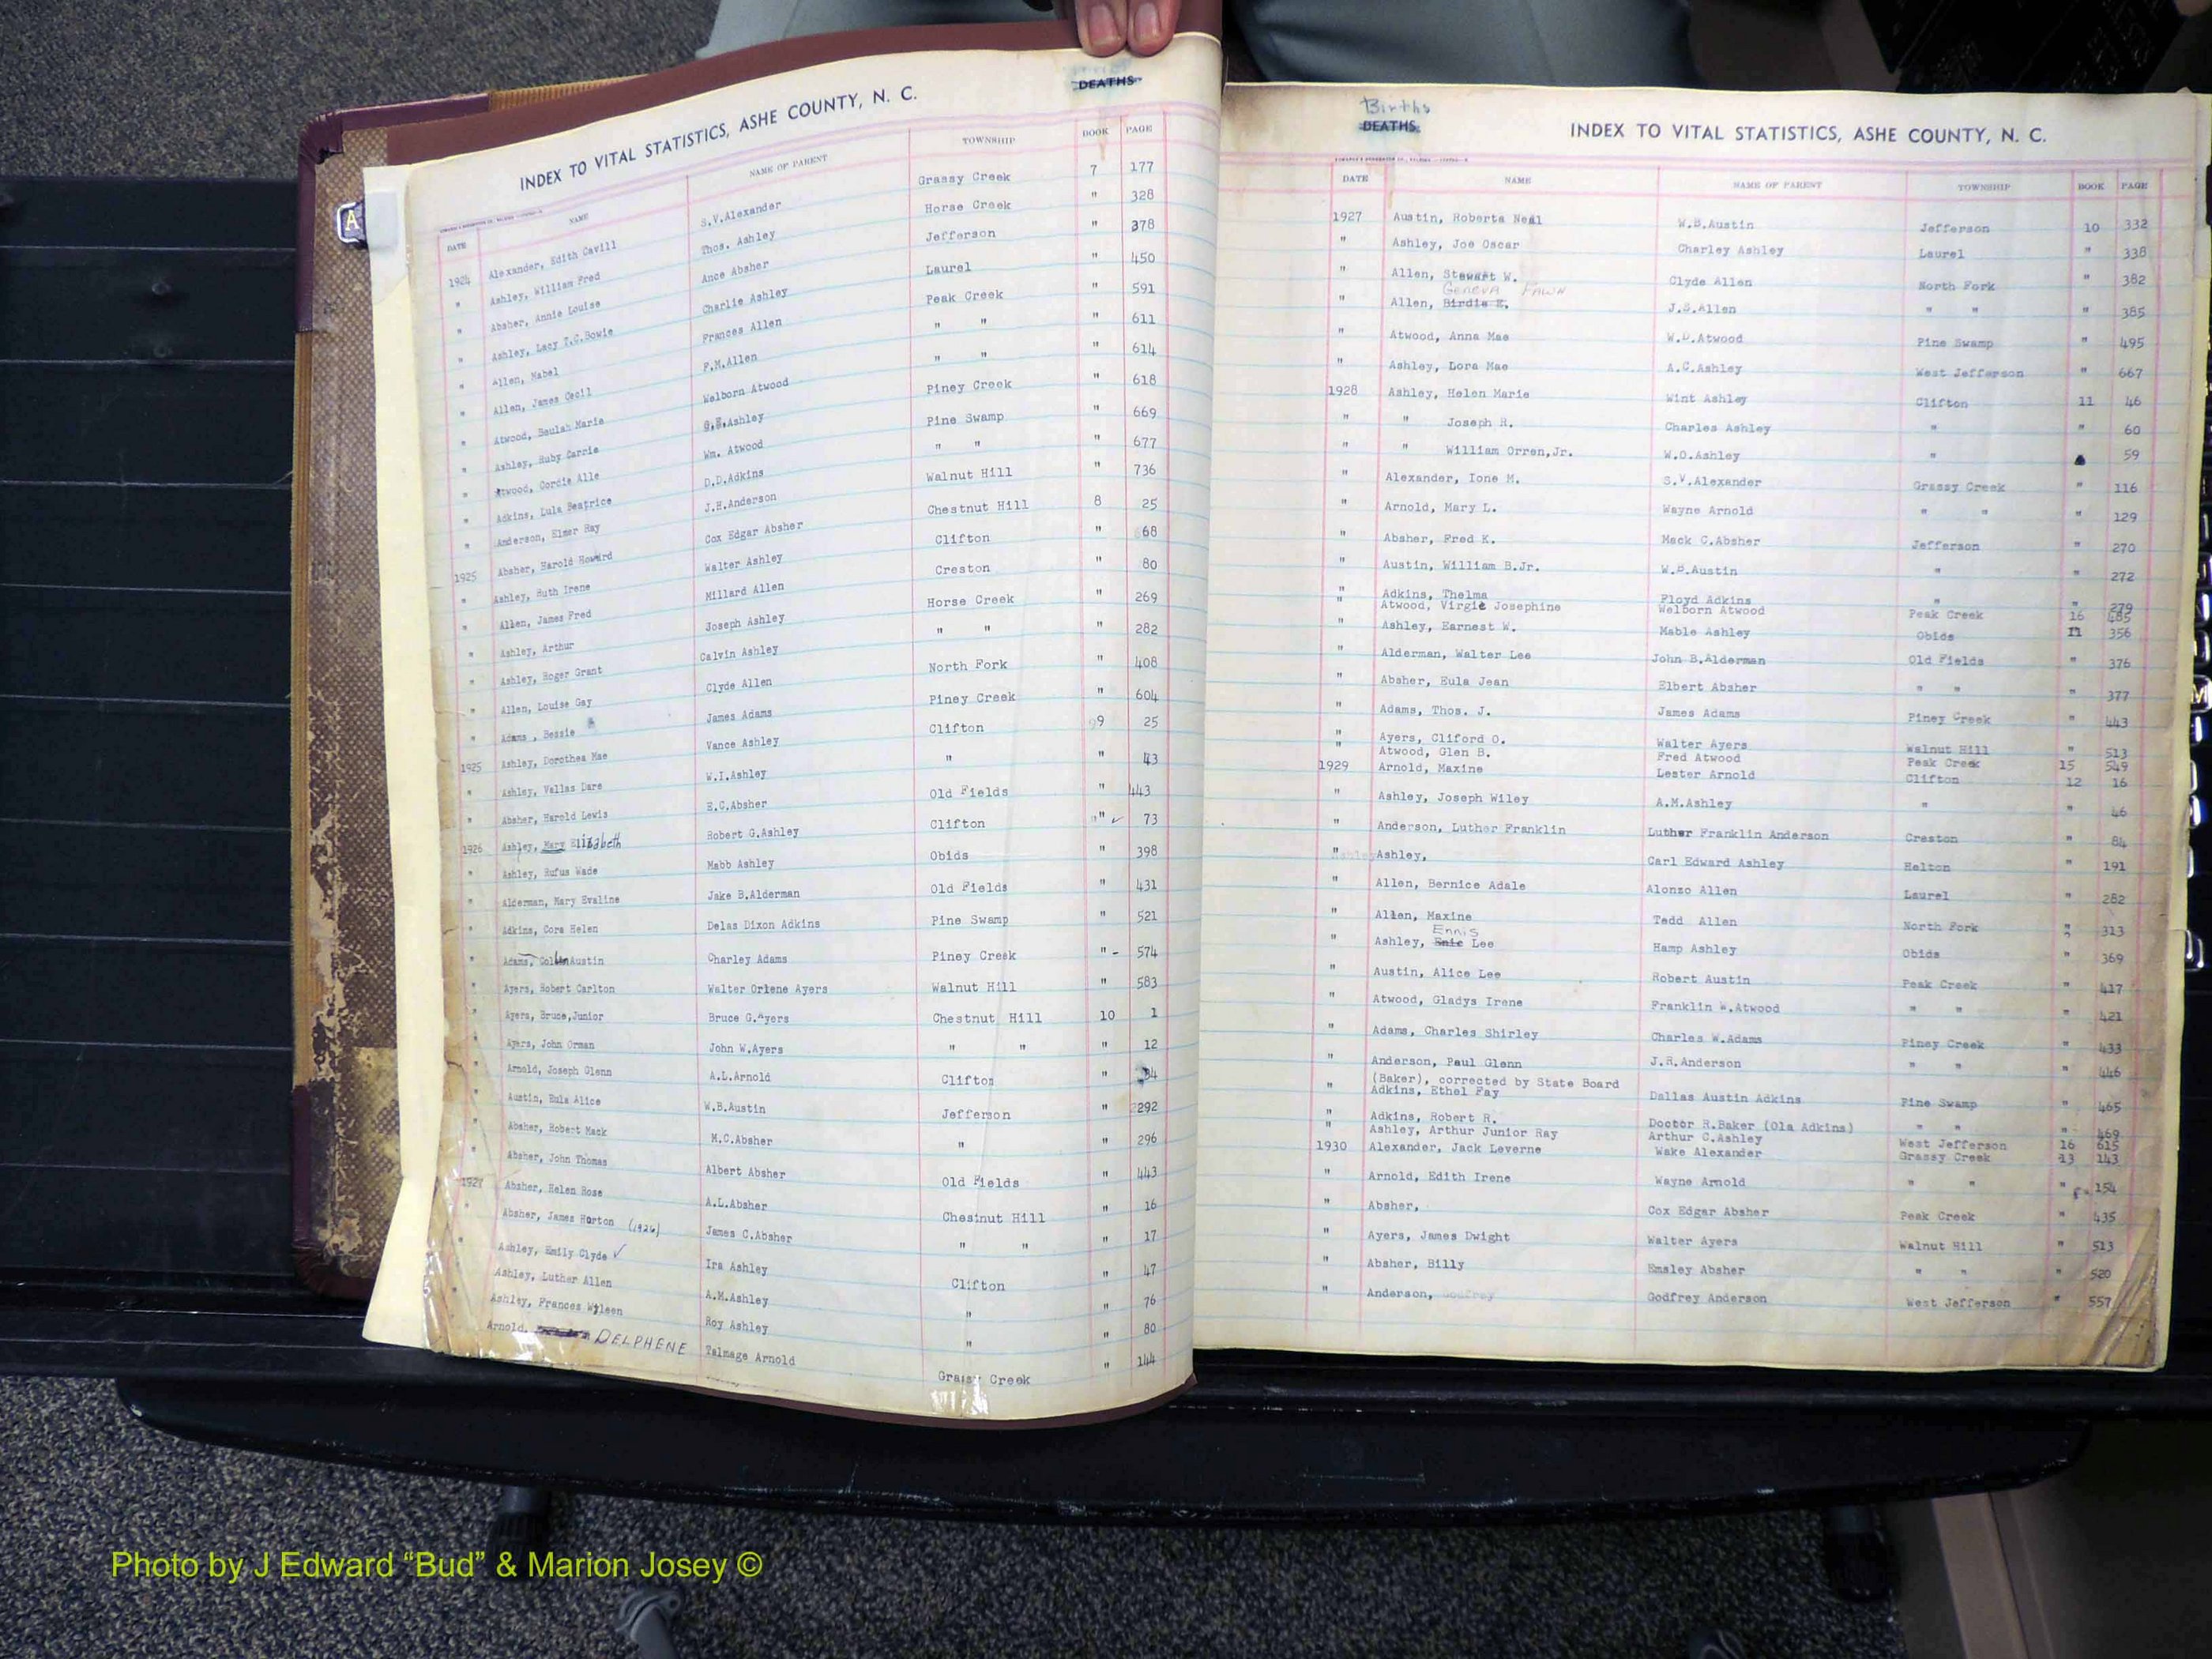 DEATHS
INDEX TO VITAL STATISTICS, ASHE COUNTY, N. C.
DATE NAME NAME OF PARENT TOWNSHIP BOOK PAGE
1924 Alexander, Edith Cavill S.V.Alexander Grassy Creek 7 177
" Ashley, William Fred Thos. Ashley Horse Creek " 328
" Absher, Annie Louise Ance Absher Jefferson " 378
" Ashley, Lacy T.C.Bowie Charlie Ashley Laurel " 450
" Allen, Mabel Frances Allen Peak Creek " 591
" Allen, James Cecil F.M.Allen " " " 611
" Atwood, Beulah Marie Welborn Atwood " " " 614
" Ashley, Ruby Carrie G.E.Ashley Piney Creek " 618
" Atwood, Cordie Alle Wm. Atwood Pine Swamp " 669
" Adkins, Lula Beatrice D.D.Adkins " " " 677
" Anderson, Elmer Ray J.H.Anderson Walnut Hill " 736
1925 Absher, Harold Howard Cox Edgar Absher Chestnut Hill 8 25
" Ashley, Ruth Irene Walter Ashley Clifton " 68
" Allen, James Fred Millard Allen Creston " 80
" Ashley, Arthur Joseph Ashley Horse Creek " 269
" Ashley, Roger Grant Calvin Ashley " " " 282
" Allen, Louise Gay Clyde Allen North Fork " 408
" Adams , Bessie James Adams Piney Creek " 604
1925 Ashley, Dorothea Mae Vance Ashley Clifton 9 25
" Ashley, Vallas Dare W.I.Ashley " " 43
" Absher, Harold Lewis E.C.Absher Old Fields " 443
1926 Ashley, Mary Elizabeth Robert G.Ashley Clifton " ✓ 73
" Ashley, Rufus Wade Mabb Ashley Obids " 398
" Alderman, Mary Evaline Jake B.Alderman Old Fields " 431
" Adkins, Cora Helen Delas Dixon Adkins Pine Swamp " 521
" Adams, Austin Charley Adams Piney Creek " - 574
" Ayers, Robert Carlton Walter Orlene Ayers Walnut Hill " 583
" Ayers, Bruce,Junior Bruce G.Ayers Chestnut Hill 10 1
" Ayers, John Orman John W.Ayers " " " 12
" Arnold, Joseph Glenn A.L.Arnold Clifton "
" Austin, Eula Alice W.B.Austin Jefferson " 292
" Absher, Robert Mack M.C.Absher " " 296
" Absher, John Thomas Albert Absher Old Fields " 443
1927 Absher, Helen Rose A.L.Absher Chestnut Hill " 16
" Absher, James Horton (1926) James C.Absher " " " 17
" Ashley, Emily Clyde ✓ Ira Ashley Clifton " 47
" Ashley, Luther Allen A.M.Ashley " " 76
" Ashley, Frances Wyleen Roy Ashley " " 80
Arnold, DELPHENE Talmage Arnold Grassy Creek " 144
Births
DEATHS
INDEX TO VITAL STATISTICS, ASHE COUNTY, N. C.
DATE NAME NAME OF PARENT TOWNSHIP BOOK PAGE
1927 Austin, Roberta Neal W.B.Austin Jefferson 10 332
" Ashley, Joe Oscar Charley Ashley Laurel " 338
" Allen, Stewart W. Clyde Allen North Fork " 382
Geneva Fawn
" Allen, Birdie E. J.S.Allen " " " 385
" Atwood, Anna Mae W.D.Atwood Pine Swamp " 495
" Ashley, Lora Mae A.C.Ashley West Jefferson " 667
1928 Ashley, Helen Marie Wint Ashley Clifton 11 46
" " Joseph R. Charles Ashley " " 60
" " William Orren,Jr. W.O.Ashley " 59
" Alexander, Ione M. S.V.Alexander Grassy Creek " 116
" Arnold, Mary L. Wayne Arnold " " " 129
" Absher, Fred K. Mack C.Absher Jefferson " 270
" Austin, William B.Jr. W.B.Austin " " 272
" Adkins, Thelma Floyd Adkins " " 279
" Atwood, Virgie Josephine Welborn Atwood Peak Creek 16 485
" Ashley, Earnest W. Mable Ashley Obids 11 356
" Alderman, Walter Lee John B.Alderman Old Fields " 376
" Absher, Eula Jean Elbert Absher " " " 377
" Adams, Thos. J. James Adams Piney Creek " 443
" Ayers, Cliford O. Walter Ayers Walnut Hill " 513
" Atwood, Glen B. Fred Atwood Peak Creek 15 549
1929 Arnold, Maxine Lester Arnold Clifton 12 16
" Ashley, Joseph Wiley A.M.Ashley " " 46
" Anderson, Luther Franklin Luther Franklin Anderson Creston " 84
" Ashley, Carl Edward Ashley Helton " 191
" Allen, Bernice Adale Alonzo Allen Laurel " 282
" Allen, Maxine Tedd Allen North Fork " 313
Ennis
" Ashley, Lee Hamp Ashley Obids " 369
" Austin, Alice Lee Robert Austin Peak Creek " 417
" Atwood, Gladys Irene Franklin W.Atwood " " " 421
" Adams, Charles Shirley Charles W.Adams Piney Creek " 433
" Anderson, Paul Glenn J.R.Anderson " " " 446
(Baker), corrected by State Board
" Adkins, Ethel Fay Dallas Austin Adkins Pine Swamp " 465
" Adkins, Robert R. Doctor R.Baker (Ola Adkins) " " " 469
" Ashley, Arthur Junior Ray Arthur C.Ashley West Jefferson 16 615
1930 Alexander, Jack Leverne Wake Alexander Grassy Creek 13 143
" Arnold, Edith Irene Wayne Arnold " " " 154
" Absher, Cox Edgar Absher Peak Creek " 435
" Ayers, James Dwight Walter Ayers Walnut Hill " 513
" Absher, Billy Emsley Absher " " " 520
" Anderson, Godfrey Godfrey Anderson West Jefferson " 557
A
M
Photo by J Edward “Bud” & Marion Josey ©